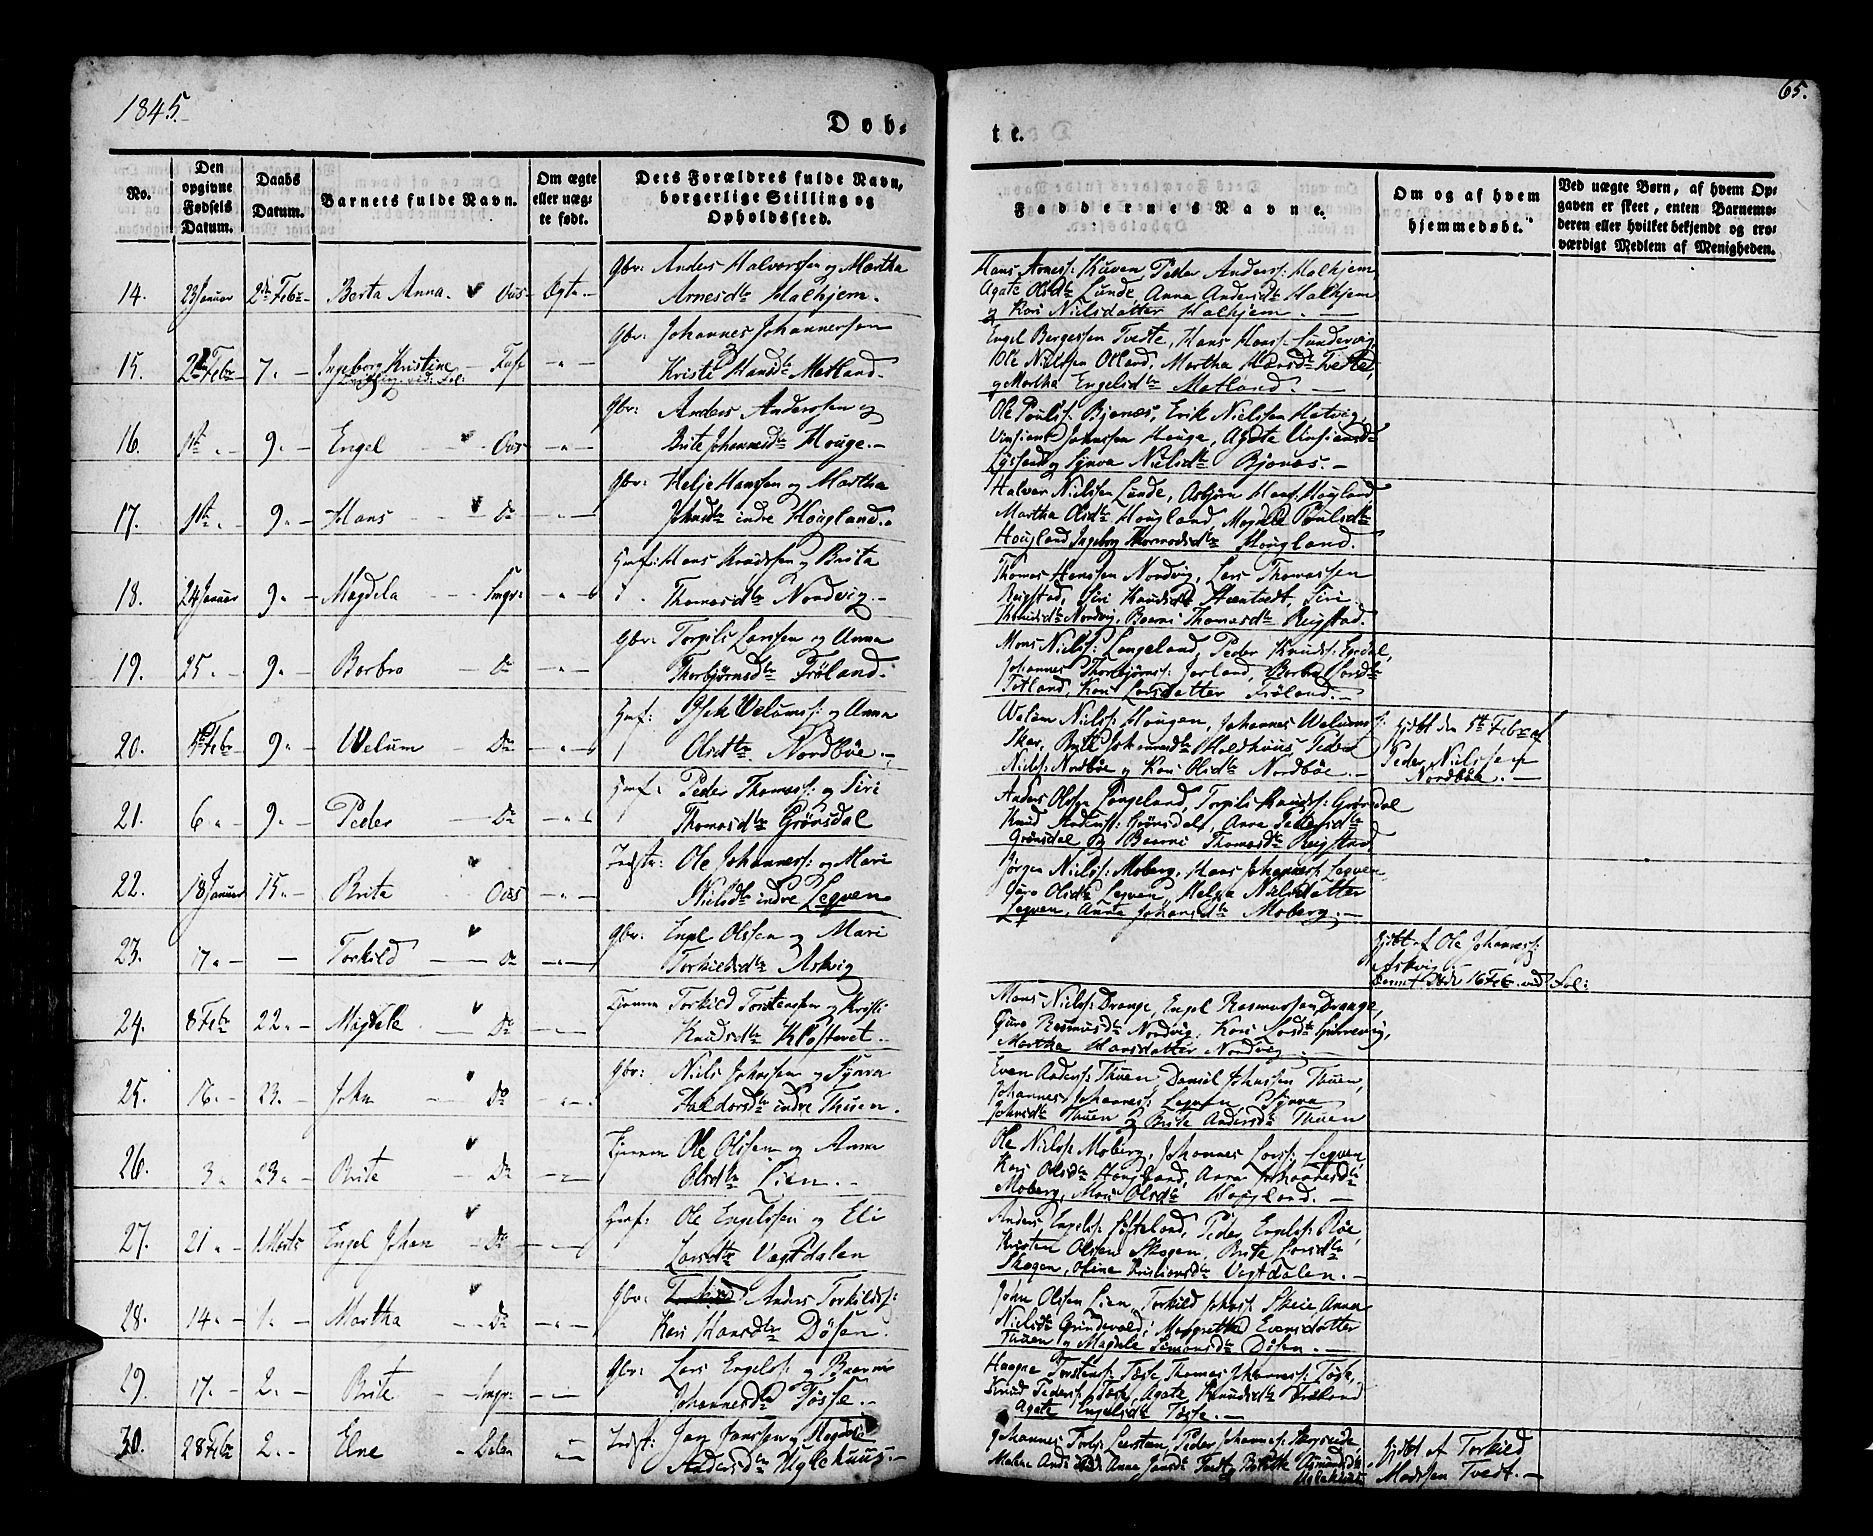 1845.
65.
Døb-
te.
No.
Den opgivne Fødsels Datum.
Daabs Datum.
Barnets fulde Navn.
Om ægte eller uægte født.
Dets Forældres fulde Navn, borgerlige Stilling og Opholdssted.
Faddernes Navne.
Om og af hvem hjemmedøbt.
Ved uægte Børn, af hvem Opgaven er skeet, enten Barnemoderen eller hvilket bekjendt og troværdigt Medlem af Menigheden.
14. 23 Januar 2de Febr Berta Anna. Oús Ægte
Gbr: Anders Halvorssen og Martha
Arnesdtr Halhjem.
Hans Arness: Kuven, Peder Anderss: Halhjem
Agate Olsdtr Lunde, Anna Andersdtr Halhjem
og Kari Nielsdatter Halhjem.
15. Febr 7. Ingeborg Kristine Fuse
Gbr: Johannes Johannessen
Kriste Hansdtr Matland.
Engel Børgessen Tvete, Hans Hans: Lundervig
Ole Nilssen Ølland, Martha Hansdtr Tvete,
og Martha Engelsdtr Matland.
16. 1ste 9. Engel Oús
Gbr: Anders Anderssen og
Brite Johannesdtr Houge.
Ole Pouls: Bjønes, Erik Nielssen Hatvig,
Vinsient Johnssen Houge, Agate Vinsientsdtr
og Synva Nielsdtr Bjønes.
17. 1ste 9. Hans Do
Gbr: Helje Hanssen og Martha
Johnsdtr indre Hougland.
Halvor Nielssen Lunde, Asbjørn Hans: Hougland
Martha Olsdtr Hougland, Magdele Poulsdtr
Hougland, Ingeborg Thormodsdtr Hougland.
18. 24 Januar 9. Magdela
Huusf: Hans Knudssen og Brita
Thomasdtr Nordvig.
Thomas Hanssen Nordvig, Lars Thomassen
Reigstad, Siri Knudsdtr, Siri
Thomasdtr Nordvig, Baarni Thomasdtr Reigstad.
19. 25 9. Barbro Do
Gbr: Torgils Larssen og Anna
Thorbjørnsdtr Frøland.
Mons Nielss: Langeland, Peder Knuds:
Johannes Thorbjørns:, Barbro Larsdtr
Kari Larsdatter Frøland.
20. Febr 9. Welum Do
Huusf: Isak Welums: og Anna
Olsdtr. Nordbøe.
Welum Niels: Haugen, Johannes Welums:
Skar, Brite Johannesdtr Holdhuus, Peder
Niels: Nordbøe og Kari Olsdtr Nordbøe.
hjdbt den Febr af
Peder Nielssen
Nordbøe.
21. 6 9. Peder Do
Huusf: Peder Thomass: og Siri
Thomasdtr Grønsdal
Anders Olssen Langeland, Torgils Knuds: Grønsdal
Knud Grønsdal, Anna Pedersdtr
Grønsdal og Baarni Thomasdtr Reigstad
22. 18 Januar 15. Brita Oús
Indstr: Ole Johanness: og Mari
Nielsdtr indre Leqven
Jørgen Niels: Moberg, Hans Johannes: Leqven,
Guro Olsdtr Leqven, Helga Nielsdatter
Leqven, Anna Johansdtr Moberg.
23. 17 Torkild Do
Gbr: Engel Olssen og Mari
Torkildsdtr Askvig
hjdbt af Ole Johannes:
Askvig.
16 Febr
24. 8 Febr 22. Magdele Do
Torkild Torstenssen og Kristi
Knudsdtr Klosteret.
Mons Niels: Drange, Engel Rasmussen Drange,
Guro Rasmusdtr Nordvig, Kari Larsdtr
Martha Hansdatter Nordvig
25. 16. 23. John Do
Gbr: Niels Johnssen og Synva
Haldorsdtr indre Thuen.
Even Anders: Thuen, Daniel Johnssen Tuen,
Johannes Johannes: Leqven, Synva
Johnsdtr Thuen og Brite Andersdtr Thuen
26. 3 23. Brite Do
Ole Olssen og Anna
Olsdtr Lien.
Ole Niels: Moberg, Johannes Lars: Leqven
Kari Olsdtr Hougland, Anna Johannesdtr
Moberg, Mari Olsdtr Hougland.
27. 21 1 Marts Engel Johan Do
Huusf: Ole Engelssen og Eli
Larsdtr Vegtdalen
Anders Engels: Søfteland, Peder Engels: Røe,
Kristen Olssen Skogen, Brite Larsdtr
Skogen, Oline Kristiansdtr Vegtdalen.
28. 14. 1. Martha Do
Gbr: Torkild Anders Torkilds:
Kari Hansdtr Døsen.
John Olssen Lien, Torkild Johns: Skeie, Anna
Nielsdtr Grindevold, Margretha Evensdatter
Thuen og Magdele Simonsdtr Døsen.
29. 17. 2. Brite
Gbr: Lars Engels: og Baarni
Johannesdtr Tøsse.
Haagne Torstens: Tøsse, Thomas Johannes: Tøsse,
Knud Peders: Tøsse, Agate Knudsdtr
Agate Engelsdtr Tøsse.
30. 28 Febr 2. Elne
Indst: Jan Janssen og Magdele
Andersdtr Uglehuus.
Johannes Peder Johannes:
Anne Jansdtr Tvedt
Uglehuus
hjdbt af Torkild
Madssen Tvedt.